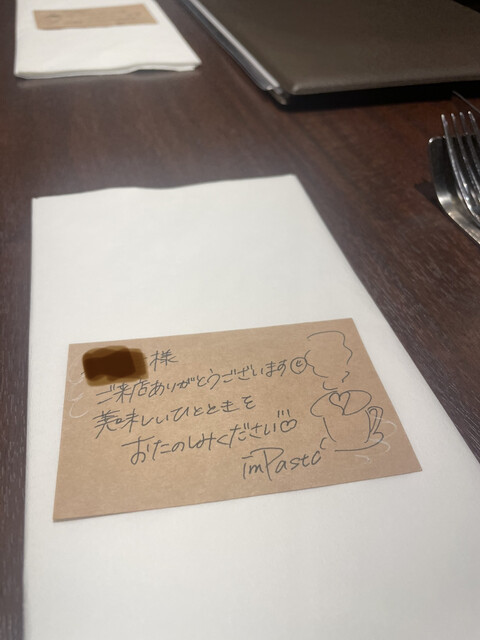 様
ご来店ありがとうございます
美味しいひとときを
おたのしみください
imPasto